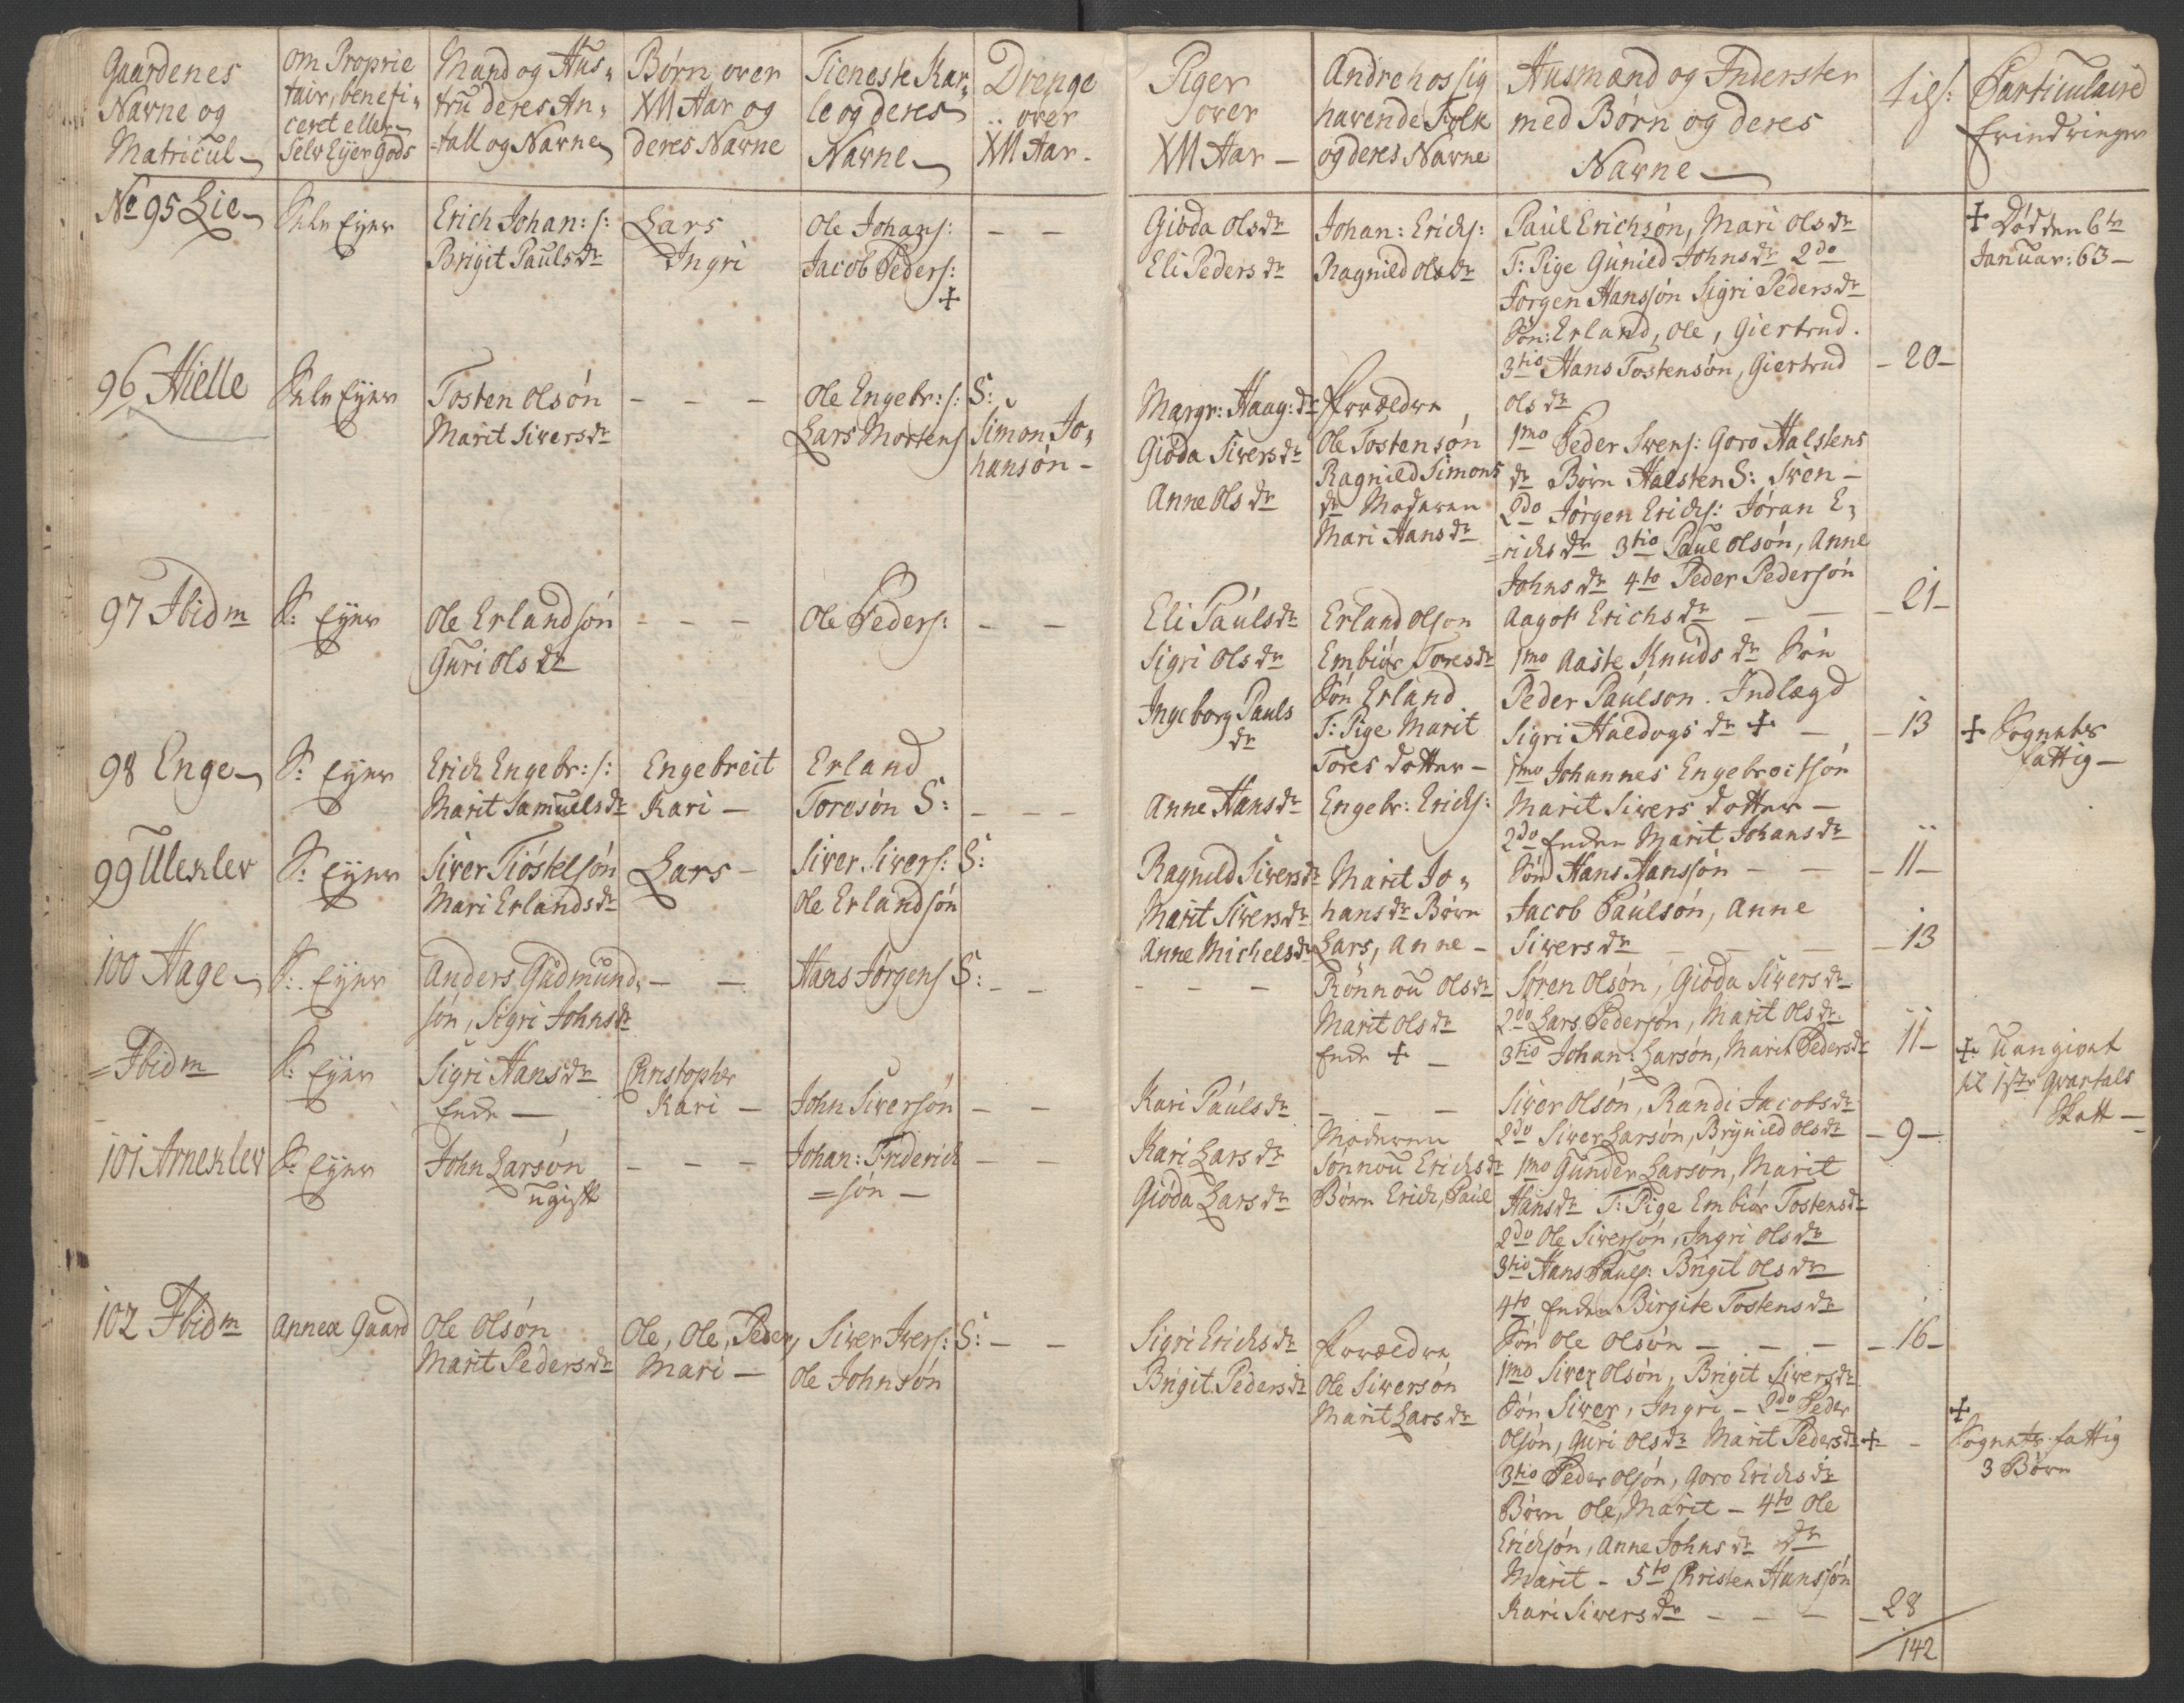 Gaardenes
Navne og
Matricul
om Proprie
tair, benefi=
ceret eller
Selv Eyer Gods
Mand og Hus=
tru deres An=
=tall og Navne
Børn over
XII Aar og
deres Navne
Tieneste Kar=
le og deres
Navne
Drenge
over
XII Aar
Piger
over
XII Aar
Andre hos sig
havende Folk
og deres Navne
Husmænd og Inderster
med Børn og deres
Navne
Particulaire
Erindringer
No 95 Lie
Selv Eyer
Erich Johan: s:
Brigit Pauls dr
Lars
Ingri
Ole Johans:
Jacob Peders:
+
— —
Gioda Ols dr
Eli Peders dr
Johan: Erichs:
Ragnild Ols dr
Paul Erichsøn, Mari Ols dr
T: Pige Gunild Johns dr 2do
Jørgen Hansøn Sigri Peders dr
Søn: Erland, Ole, Giertrud.
3tio Hans Tostensøn, Giertrud
Ols dr
— 20 —
+ Død den 6te
Januar: 63 —
96 Hielle
Selv Eyer
Tosten Olsøn
Marit Sivers dr
— — —
Ole Engebr: s: S:
Lars Mortens
Simon Jo=
hansøn —
Margr: Haag: dr
Gioda Sivers dr
Anne Ols dr
Forældre
Ole Tostensøn
Ragnild Simons
dr Moderen
Mari Hans dr
1mo Peder Svens: Goro Halstens
dr Børn Halsten S: Sven —
2do Jørgen Erichs: Jøran E=
=richs dr 3tio Paul Olsøn, Anne
Johns dr 4to Peder Pedersøn
Aagot Erichs dr — —
— 21 —
97 Ibidm
S: Eyer
Ole Erlandsøn
Guri Ols dr
— — —
Ole Peders:
— —
Eli Pauls dr
Sigri Ols dr
Ingeborg Pauls
dr
Erland Olson
Embiør Tores dr
Søn Erland
T: Pige Marit
Tores Dotter —
1mo Aaste Knuds dr Søn
Peder Paulson. Indlægd
Sigri Haldogs dr + —
— 13
+ Sognets
fattig —
98 Enge
S: Eyer
Erich Engebr: s:
Marit Samuels dr
Engebreit
Kari —
Erland
Toresøn S:
— — —
Anne Hans dr
Engebr: Erichs:
1mo Johannes Engebreitsøn
Marit Sivers Dotter —
2do Enken Marit Johans dr
Søn Hans Hansøn — —
— 11 —
99 Ulexlev
S: Eyer
Siver Tioskelsøn
Mari Erlands dr
Lars —
Siver Sivers: S:
Ole Erlandsøn
Ragnild Sivers dr
Marit Sivers dr
Anne Michels dr
Marit Jo=
hans dr Børn
Lars, Anne —
Jacob Paulsøn, Anne
Sivers dr —
— 13
100 Hage
S: Eyer
Anders Gudmund=
søn, Sigri Johns dr
— —
Hans Jørgens S:
— —
— — —
Rønnou Ols dr
Marit Ols dr
Enke + —
Søren Olsøn, Gioda Sivers dr
2do Lars Pedersøn, Marit Ols dr.
3tio Johan: Larsøn, Marit Peders dr
11 —
+ uangivet
til 1ste Qvartals
Skatt —
= Ibidm
S: Eyer
Sigri Hans dr
Enke —
Christopher
Kari —
John Siversøn
— —
Kari Pauls dr
— — —
Siver Olsøn, Randi Jacobs dr
2do Siver Larsøn, Brynild Ols dr
— 9 —
101 Arnexlev
S: Eyer
John Larsøn
ugift
— — —
Johan: Friderich
= søn —
— —
Kari Lars dr
Gióda Lars dr
Moderen
Sønnou Erichs dr
Børn Erich, Paul
1mo Gunder Larsøn, Marit
Hans dr T: Pige Embiør Tostens dr
2do Ole Siversøn, Ingri Ols dr
3tio Hans Pauls: Brigit Ols dr
4to Enken Birgite Tostens dr
Søn Ole Olsøn — — —
— 16 —
102 Ibidm
Annex Gaard
Ole Olsøn
Marit Peders dr
Ole, Ole, Peder,
Mari —
Siver Ivers: S:
Ole Johnsøn
— —
Sigri Erichs dr
Brigit Peders dr
Forældre
Ole Siversøn
Marit Lars dr
1mo Siver Olsøn, Brigit Sivers dr
Søn Siver, Ingri — 2do Peder
Olsøn, Guri Ols dr Marit Peders dr +
3tio Peder Olsøn, Goro Erichs dr
Børn Ole, Marit — 4to Ole
Erichsøn, Anne Johns dr dr
Marit — 5to Christen Hansøn
Kari Sivers dr — — —
— 28
142
+
Sognets fattig
3 Børn